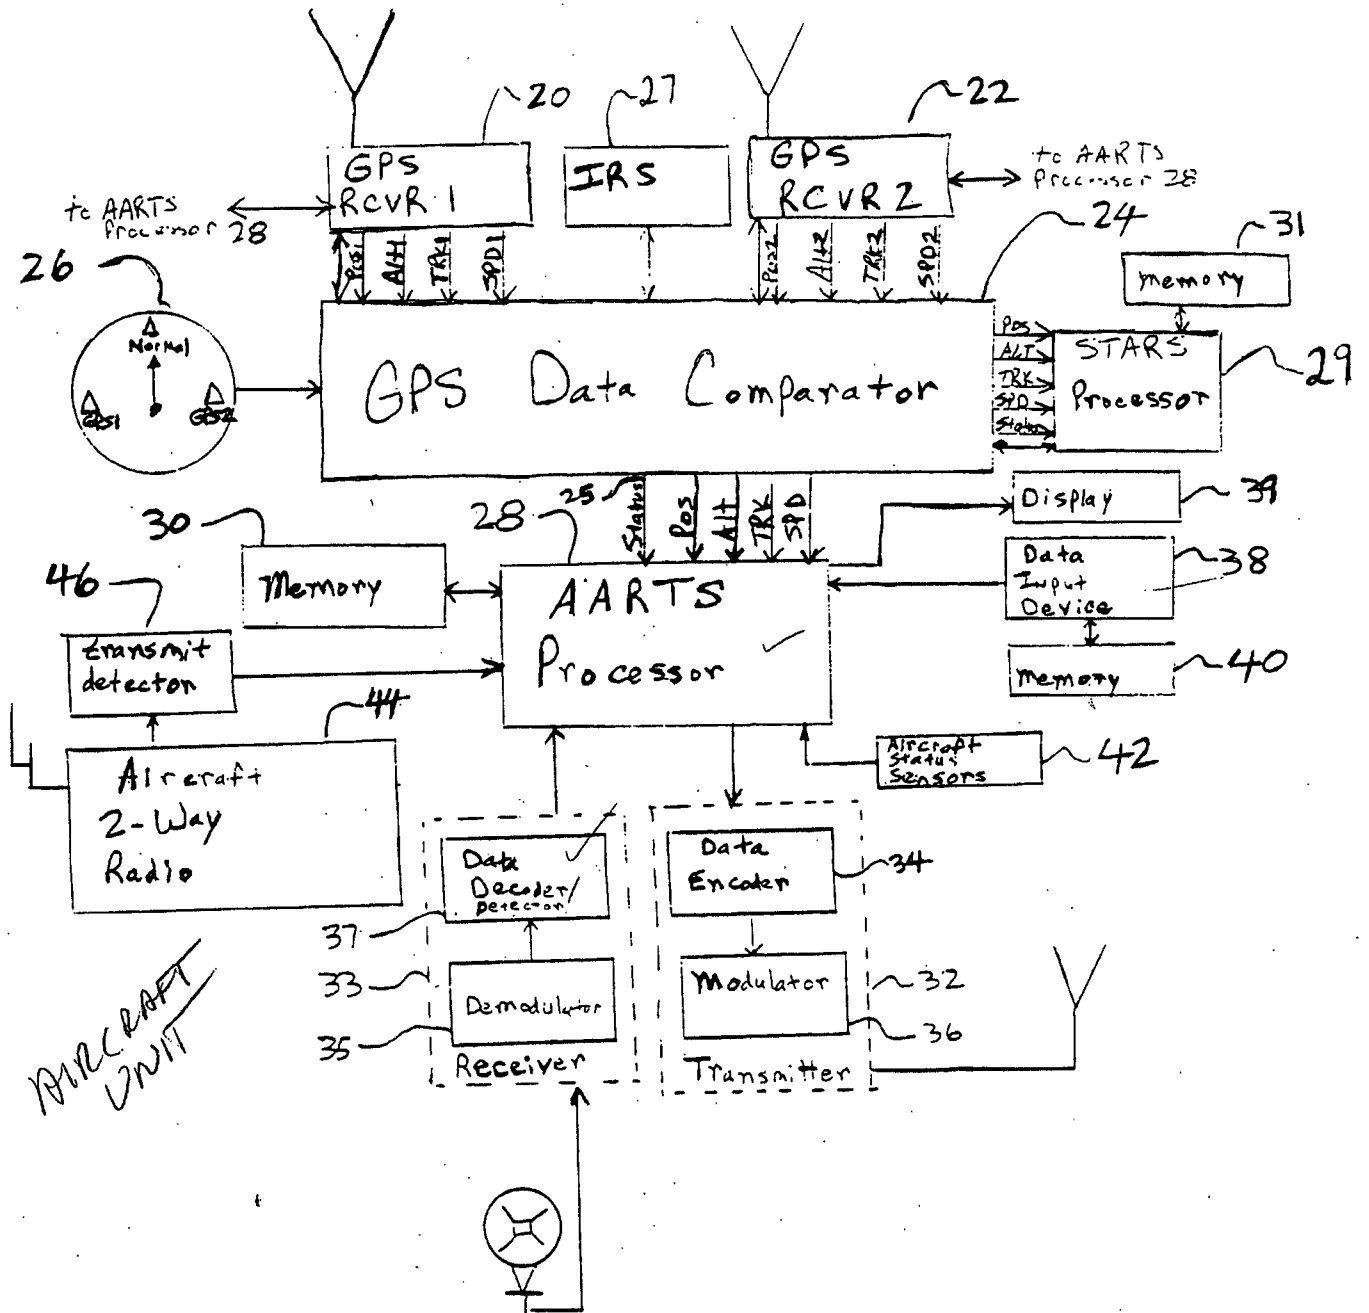 20
27
22
GPS
RCVR 1
IRS
GPS
RCVR 2
to AARTS
Processor 28
to AARTS
Processor 28
24
31
26
Pos1
Alt1
TRK1
SPD1
Pos2
Alt2
TRK2
SPD2
memory
Normal
GPS1
GPS2
GPS Data Comparator
POS
ALT
TRK
SPD
Status
STARS
Processor
29
25
Status
Pos
Alt
TRK
SPD
Display
39
30
28
Memory
AARTS
Processor
Data
Input
Device
38
46
transmit
detector
memory
40
44
Aircraft
2-Way
Radio
Aircraft
Status
Sensors
42
Data
Decoder/
Detector
37
Data
Encoder
34
33
Demodulator
35
Receiver
Modulator
32
36
Transmitter
AIRCRAFT
UNIT